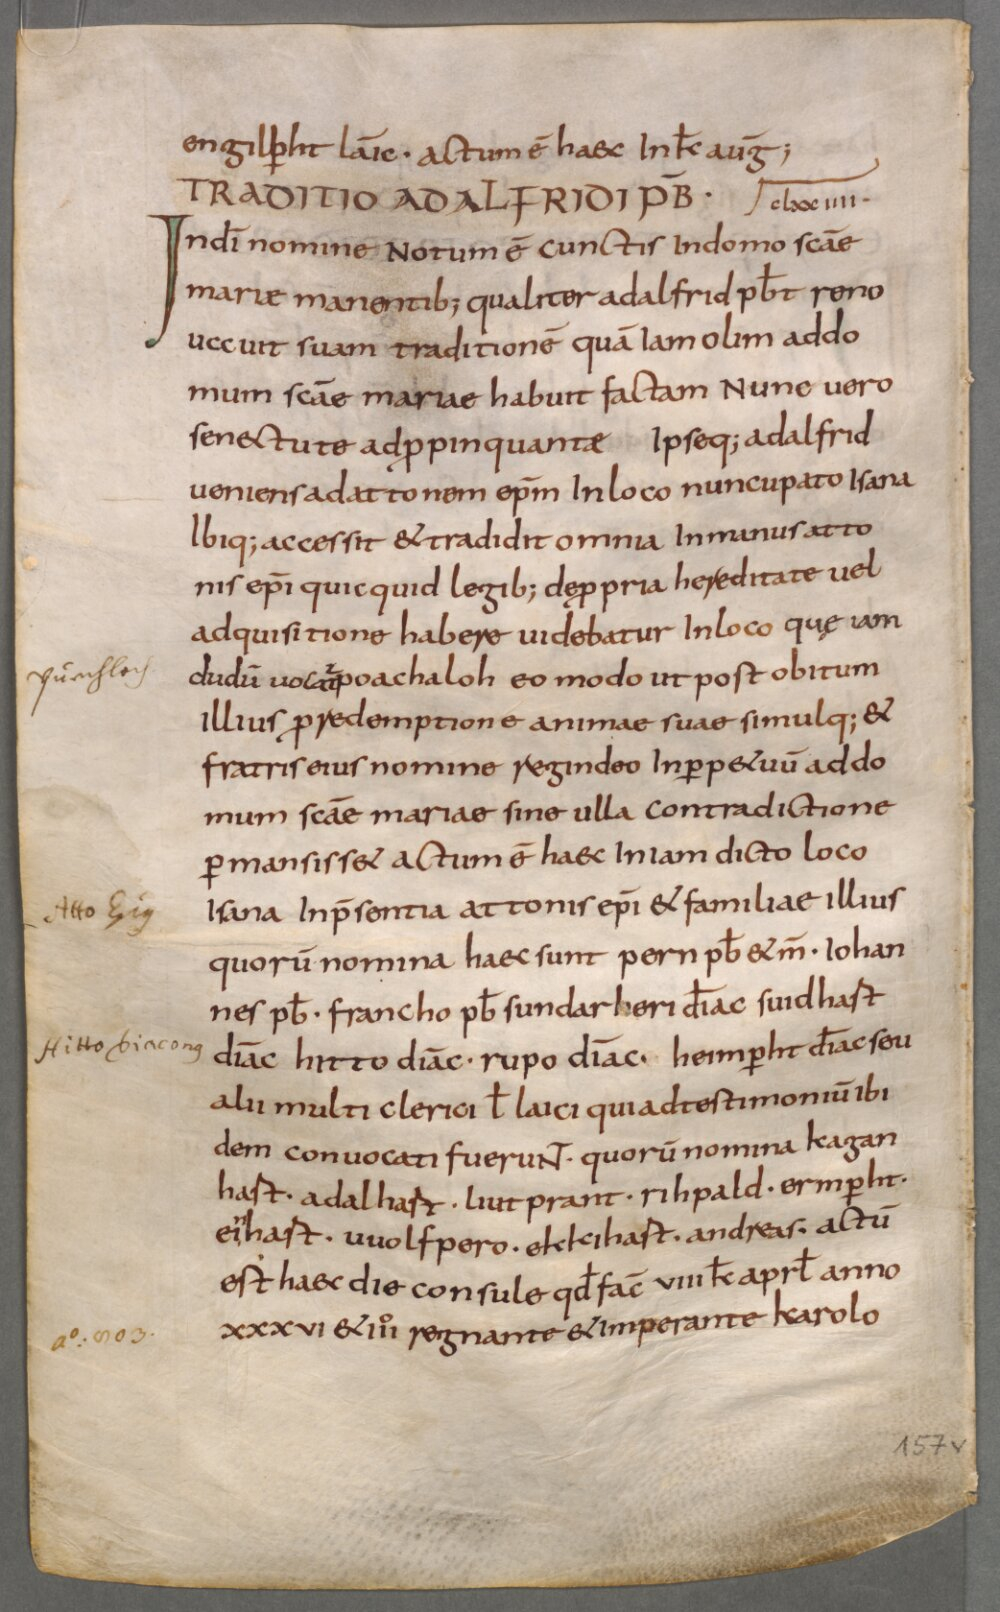 engilꝑht lāic · actum ē haec In kł aug̅;
TRADITIO ADALFRIDI PB̅ · clxxiiii ·
In dī nomine Notum ē cunctis In domo scāe
mariæ manentib; qualiter adalfrid pb̅t reno
uccuit suam traditionē quā Iam olim ad do
mum scāe mariae habuit factam Nunc uero
senectute adꝓpinquantæ Ipseq; adalfrid
ueniens ad attonem ep̅m In loco nuncupato Isana
Ibiq; accessit & tradidit omnia In manus atto
nis ep̅i quicquid legib; de ꝓpria hereditate uel
adquisitione habere uidebatur In loco quę iam
dudū uocatͬ poachaloh eo modo ut post obitum
illius ꝓ redemptione animae suae simulq; &
fratris eius nomine regindeo In ꝑp&uū ad do
mum scāe mariae sine ulla contradictione
ꝑmansiss& actum ē haec In iam dicto loco
Isana In p̅sentia attonis ep̅i & familiae illius
quorū nomina haec sunt pern pb̅ & m̅ · Iohan
nes pb̅ · francho pb̅ sundarheri diāc suidhast
diāc hitto diāc · rupo diāc · heimꝑht diāc seu
alii multi clerici ł laici qui ad testimoniū ibi
dem conuocati fueruNT · quorū nomina kagan
hast · adalhast · liutprant · rihpald · ermꝑht ·
einhast · uuolfpero · ekkihast · andreas · actū
est haec die consule qđ fac̅ viiii kł aprł anno
xxxvi & iii͛ regnante & imperante karolo
Pürchloch
Atto Epis
Hitto diacong
a°: 803.
157v